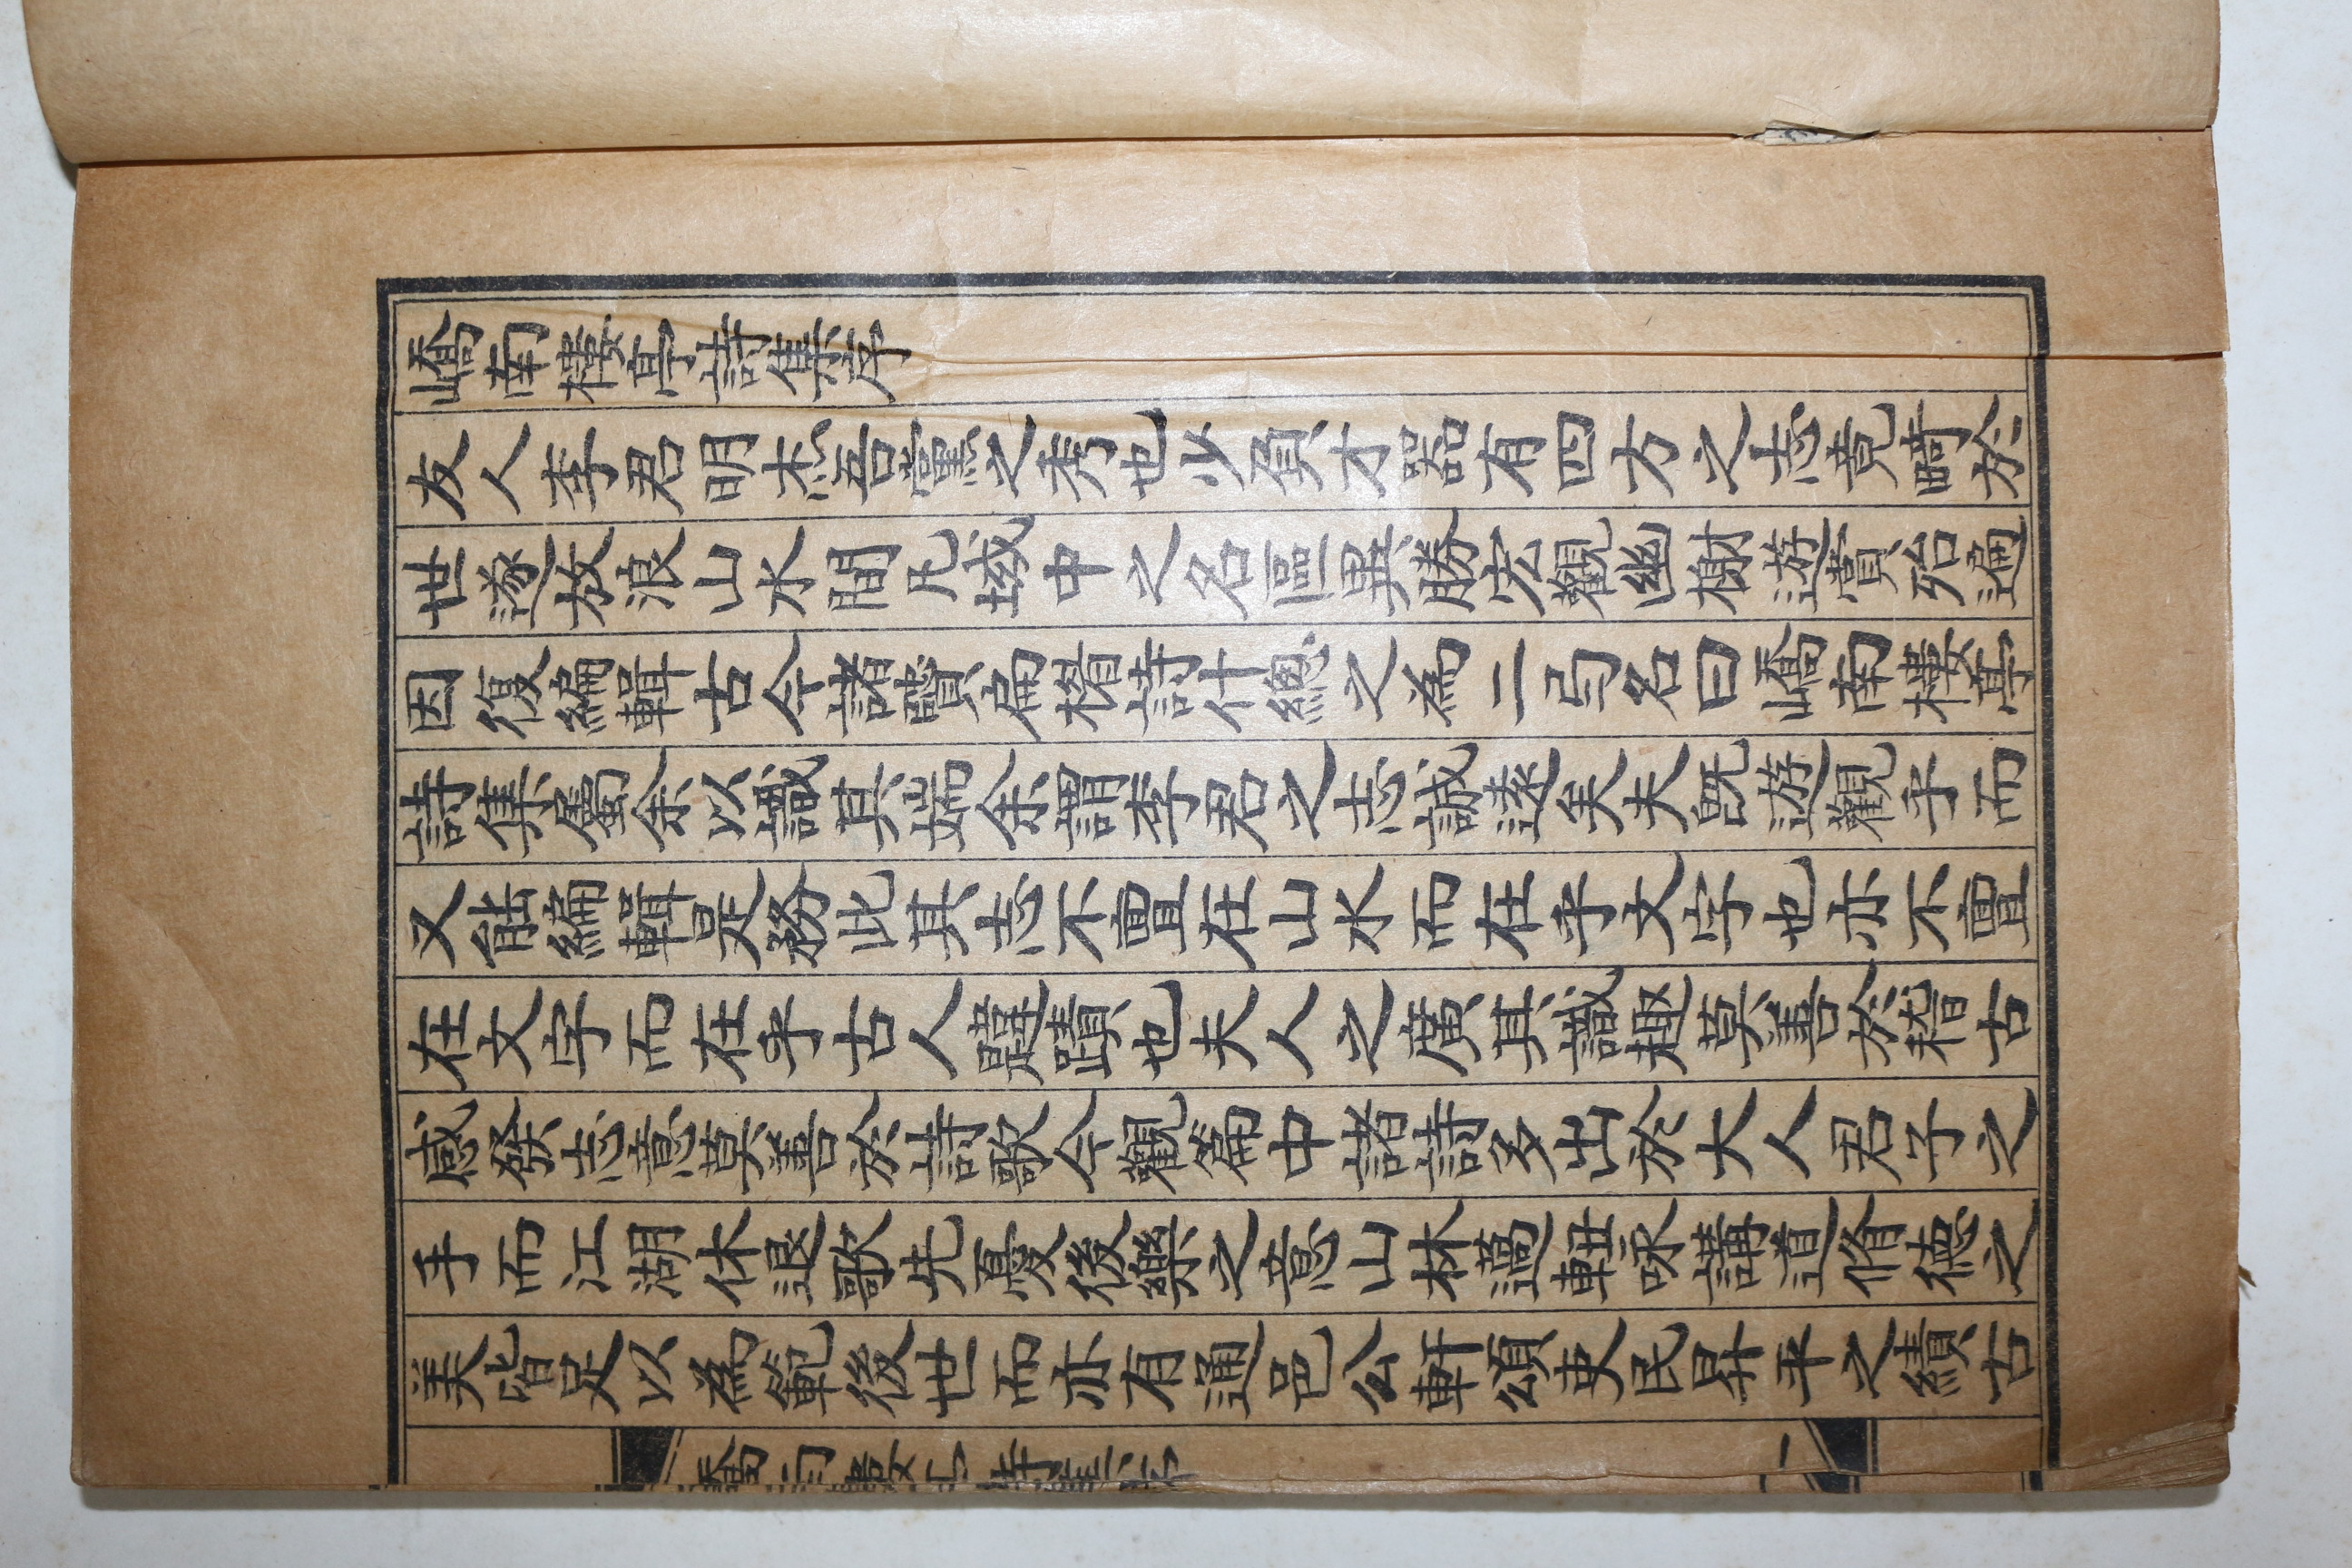 嶠南樓亭詩集序
友人李君明杰吾黨之秀也少負才器有四方之志竟畸於
世遂放浪山水間凡域中之名區異勝宏觀幽榭遊賞殆遍
因復編輯古今諸賢扁楣詩什總之為二弓名曰嶠南樓亭
詩集屬余以識其端余謂李君之志誠遠矣夫旣遊觀乎而
又能編輯是務此其志不亶在山水而在乎文字也亦不亶
在文字而在乎古人韙蹟也夫人之廣其識趣莫善於稽古
感發志意莫善於詩歌今觀篇中諸詩多出於大人君子之
手而江湖休退歌先憂後樂之意山林薖軸咏講道脩德之
美皆足以為範後世而亦有通邑公軒頌吏民昇平之績古
嶠南樓亭詩集序
一